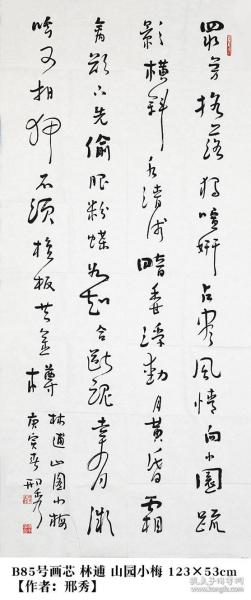 眾芳搖落獨喧妍占盡風情向小園疏
影橫斜水清淺暗香浮動月黃昏霜
禽欲下先偷眼粉蝶如知合斷魂幸有微
吟可相狎不須檀板共金樽
林逋山園小梅
庚寅春邢秀
B85号画芯 林逋 山园小梅 123×53cm
【作者：邢秀】